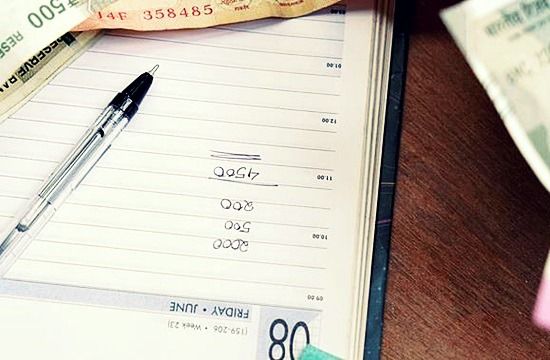 08
FRIDAY • JUNE
(159-206 • Week 23)
09.00
10.00
2000
500
200
11.00
4500
12.00
01.00
₹500
RESERVE BAN
14F 358485
भारतीय